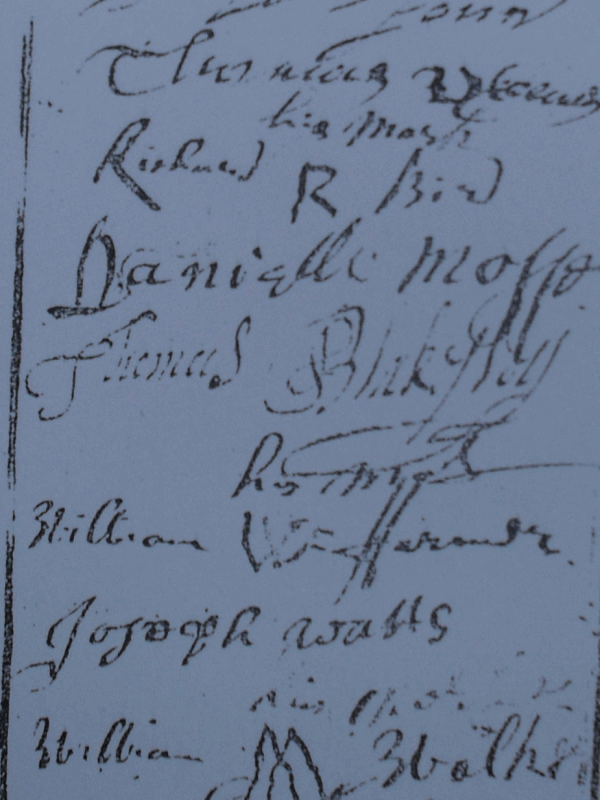 John
Thomas
his mark
Richard R Bird
Danielle Mosse
Thomas Blakesley
his mark
William
Joseph watts
his mark
William